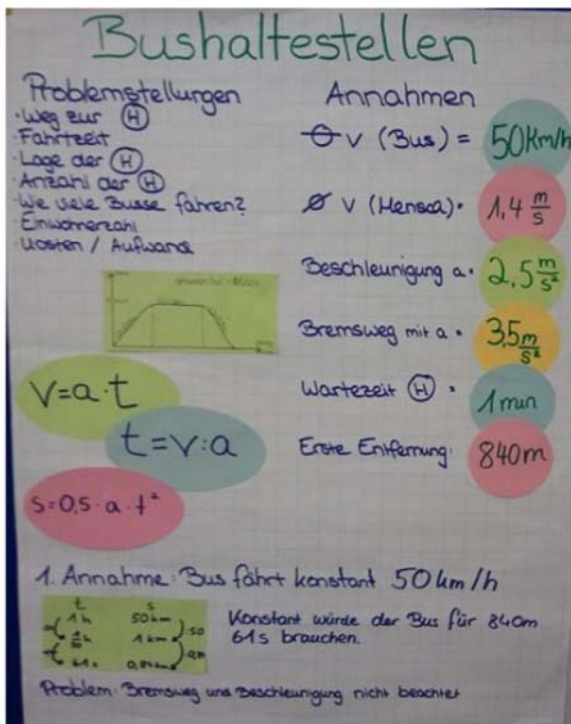 Bushaltestellen
Problemstellungen
· Weg zur Ⓗ
· Fahrtzeit
· Lage der Ⓗ
· Anzahl der Ⓗ
· Wie viele Busse fahren?
· Einwohnerzahl
· Kosten / Aufwand
v=a·t
t=v:a
s=0,5·a·t²
Annahmen
Ø v (Bus) = 50Km/h
Ø v (Mensch) = 1,4 m/s
Beschleunigung a = 2,5 m/s²
Bremsweg mit a = 3,5 m/s²
Wartezeit Ⓗ = 1 min
Erste Entfernung: 840m
1. Annahme: Bus fährt konstant 50 km/h
t s
1h 50km
1/50 h 1 km :50
61s 0,84km
Konstant würde der Bus für 840m
61s brauchen.
Problem: Bremsweg und Beschleunigung nicht beachtet